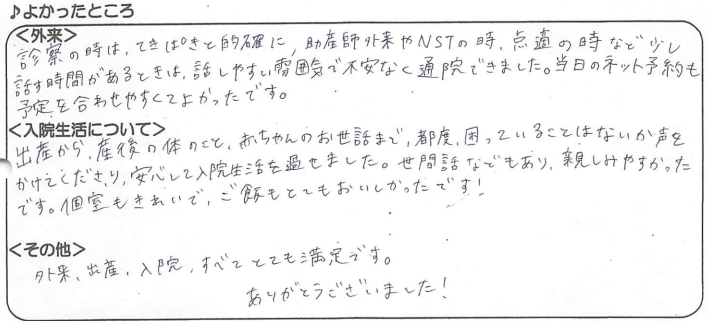 ♪よかったところ
<外来>
診察の時は、てきぱきと的確に、助産師外来やNSTの時、点滴の時など少し
話す時間があるときは、話しやすい雰囲気で不安なく通院できました。当日のネット予約も
予定を合わせやすくてよかったです。
<入院生活について>
出産から、産後の体のこと、赤ちゃんのお世話まで、都度、困っていることはないか声を
かけてくださり、安心して入院生活を過せました。世間話などもあり、親しみやすかった
です。個室もきれいで、ご飯もとてもおいしかったです!
<その他>
外来、出産、入院、すべてとても満足です。
ありがとうございました!